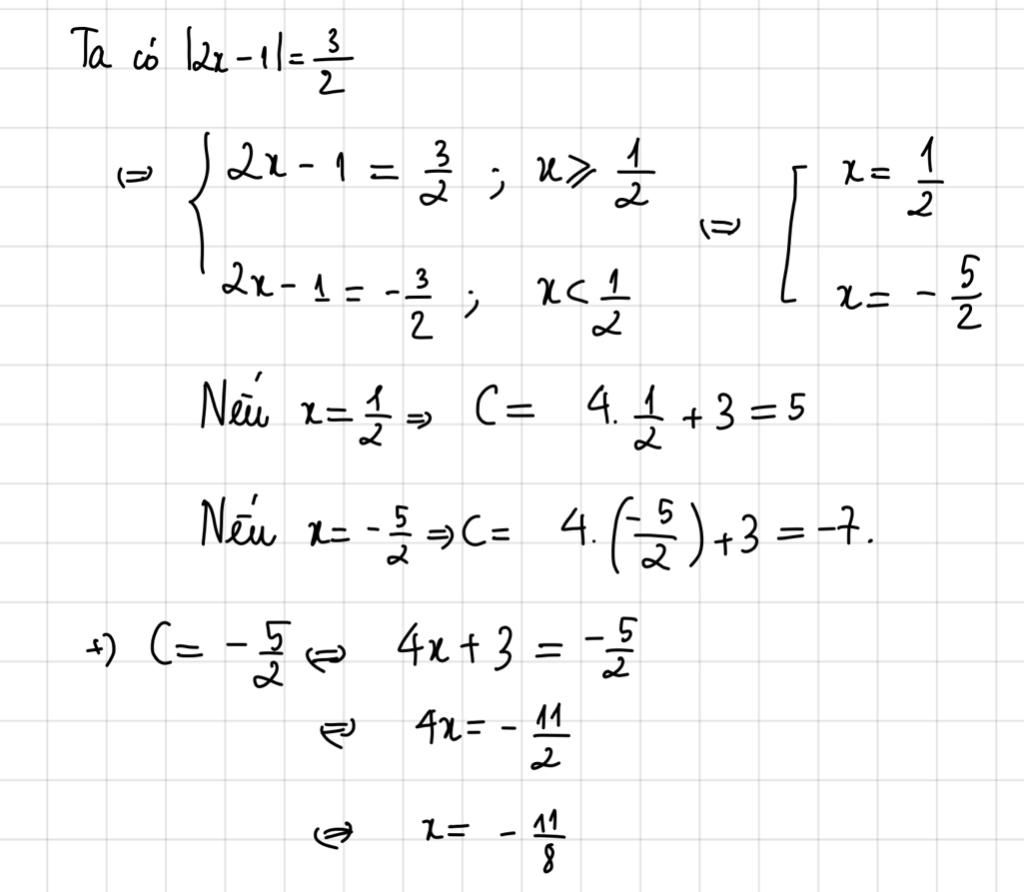 Ta có |2x - 1| = 3/2
⇔ { 2x - 1 = 3/2 ; x ⩾ 1/2
2x - 1 = - 3/2 ; x < 1/2
⇔ [ x = 1/2
x = - 5/2
Nếu x = 1/2 ⇒ C = 4. 1/2 + 3 = 5
Nếu x = - 5/2 ⇒ C = 4. (-5/2) + 3 = -7.
+) C = - 5/2 ⇔ 4x + 3 = -5/2
⇔ 4x = - 11/2
⇔ x = - 11/8